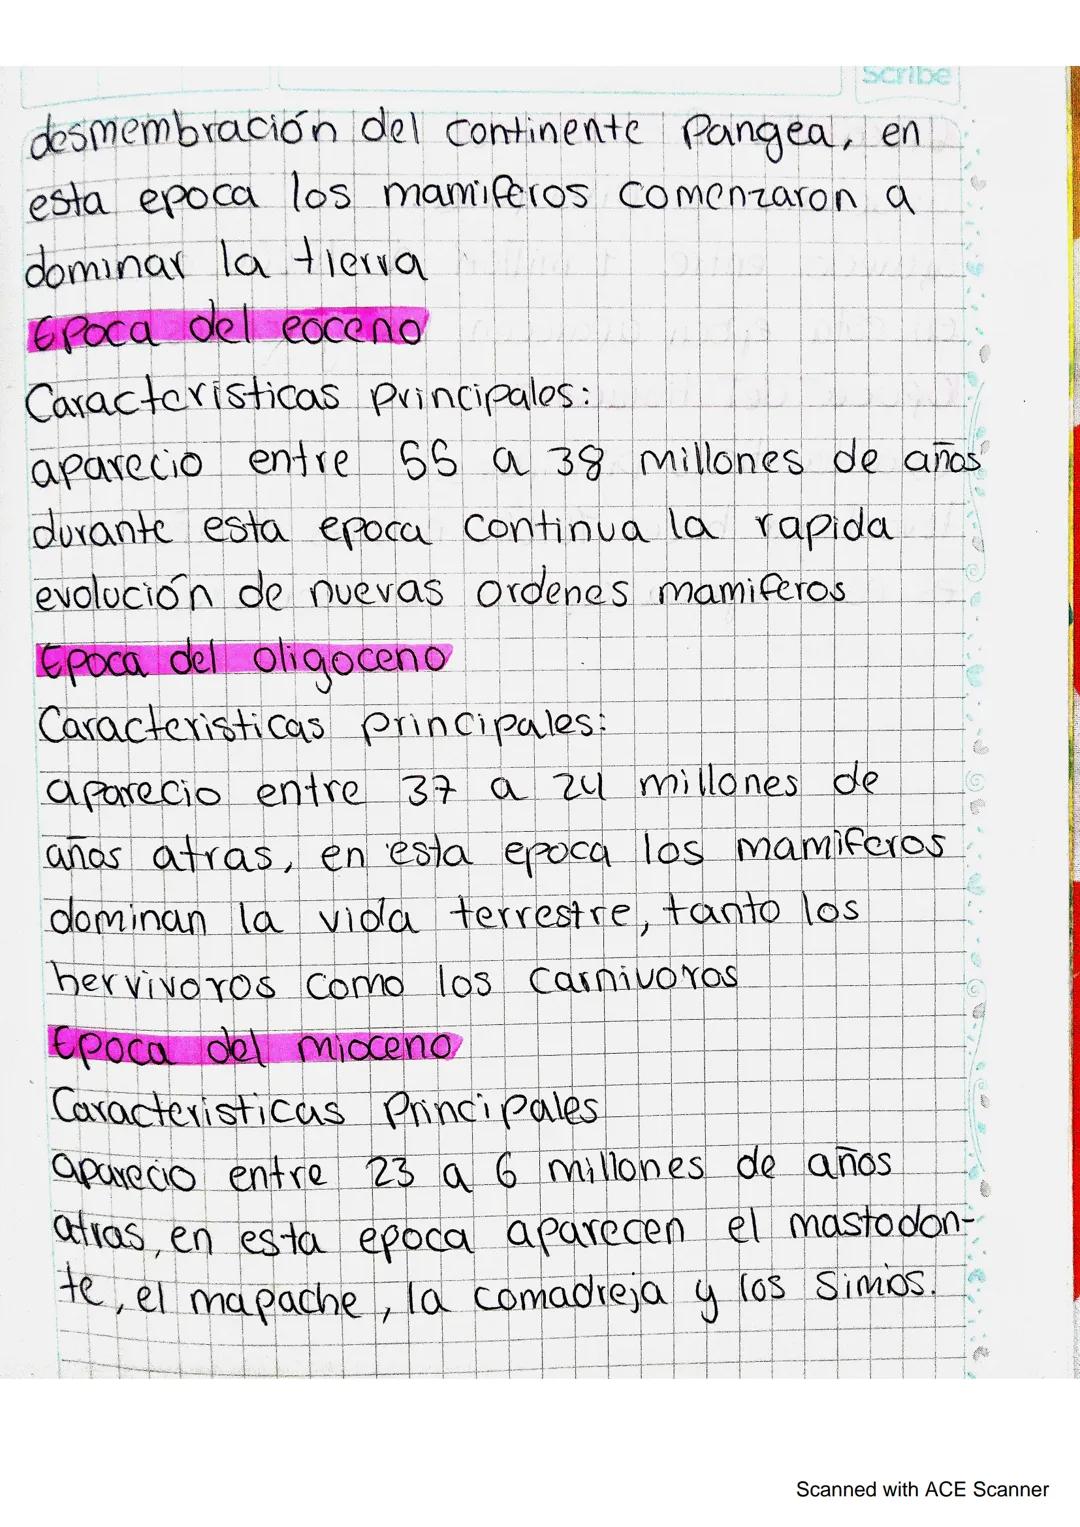 Scribe
desmembración del continente Pangea, en
esta epoca los mamiferos comenzaron a
dominar la tierra
Epoca del eoceno
Caracteristicas principales:
aparecio entre 55 a 38 millones de años
durante esta epoca continua la rapida
evolución de nuevas ordenes mamiferos
Epoca del oligoceno
Caracteristicas principales:
aparecio entre 37 a 24 millones de
años atras, en esta epoca los mamiferos
dominan la vida terrestre, tanto los
hervivoros como los carnivoros
Epoca del mioceno
Caracteristicas Principales
aparecio entre 23 a 6 millones de años
atras, en esta epoca aparecen el mastodon-
te, el mapache, la comadreja y los simios.
Scanned with ACE Scanner